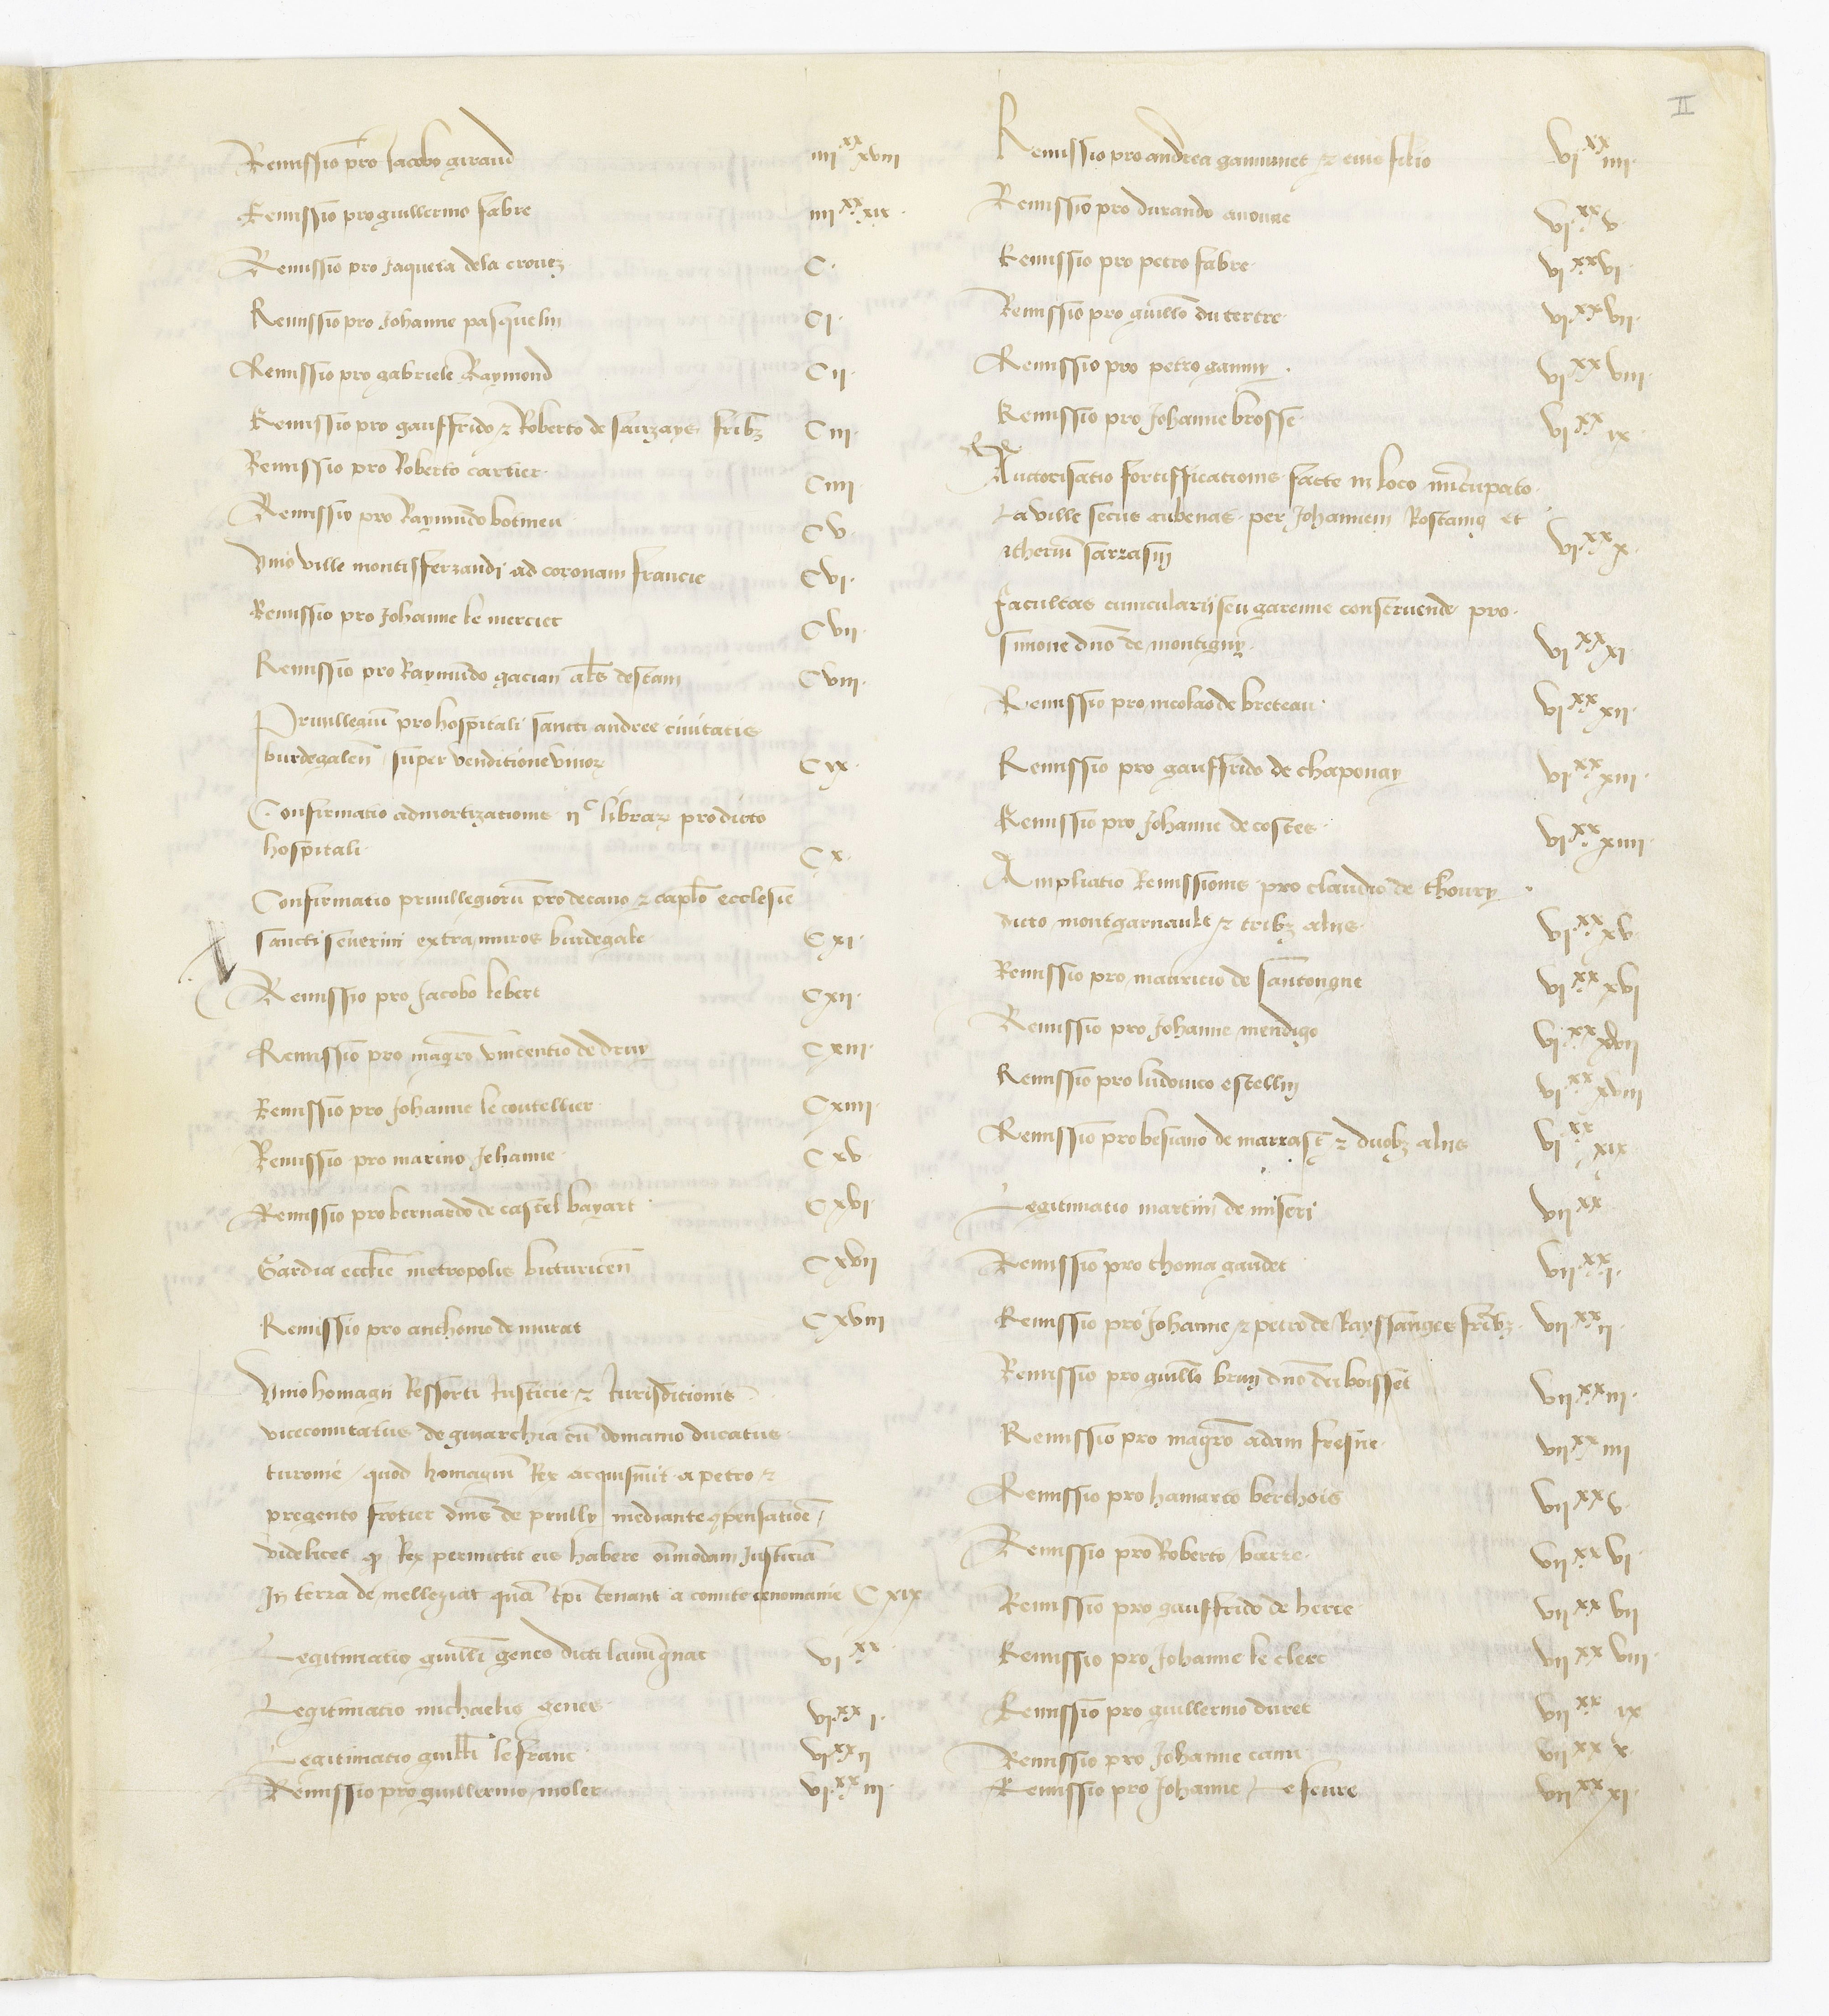 II
Remissio pro Jacobo giraud iiii^xx xviii
Remissio pro guillermo fabre iiii^xx xix.
Remissio pro Jaqueta dela crouez C.
Remissio pro Johanne pasquelin CI.
Remissio pro gabriele Raymond CII.
Remissio pro gauffrido & Roberto de sauzaye frib3 CIII.
Remissio pro Roberto cartier. CIIII.
Remissio pro Raymundo botineu CV.
Unio ville montisferrandi ad coronam francie CVI.
Remissio pro Johanne le mercier CVII.
Remissio pro Raymundo gacian als destam CVIII.
Privillegiu pro hospitali sancti andree civitatis
burdegalen super venditione vinor CIX.
Confirmatio admortizationis IIc librar pro dicto
hospitali. CX.
Confirmatio privillegioru pro decano & caplo ecclesie
sancti severini extra muros burdegale CXI.
Remissio pro Jacobo lebert CXII.
Remissio pro magro vincentio de druy CXIII.
Remissio pro Johanne le coutellier CXIIII.
Remissio pro marino Jehanne. CXV.
Remissio pro bernardo de castel bayart. CXVI.
Gardia ecclie metropolis bituricen CXVII
Remissio pro anthonio de murat CXVIII
Unio homagii Ressorti Justicie & Jurisditionis
vicecomitatus de guierchia cu domanio ducatus
turonie / quod homagiu Rex acquisivit a petro &
pregento frotier dnis de prully mediante 9pensatioe /
videlicet q Rex permittit eis habere oimodam Justicia
In terra de melleziar qua ipi tenant a comite cenomanie CXIX
Legitimatio guilli genco dicti lavergnac VI^xx
Legitimatio michaelis genes. VI^xx I.
Legitimatio guilli lefranc VI^xx II
Remissio pro guillermo moler. VI^xx III.
Remissio pro andrea gaminet & eius filio VI^xx IIII.
Remissio pro durando avonne VI^xx V.
Remissio pro petro fabre. VI^xx VI.
Remissio pro guillo du tertre. VI^xx VII.
Remissio pro petro ganny. VI^xx VIII.
Remissio pro Johanne brosse. VI^xx IX.
Auctorisatio fortifficationis facte in loco nuncupato
La ville secus aubenas per Johannem Rostaing et
itheriu sarrasin VI^xx X.
Facultas cunicularii seu garenne construende pro
simone dno de montigny. VI^xx XI.
Remissio pro nicolao de breteau. VI^xx XII.
Remissio pro gauffrido de chaponay VI^xx XIII.
Remissio pro Johanne de costes. VI^xx XIIII.
Ampliatio Remissionis pro claudio de thoury
dicto montgarnault & trib3 aliis. VI^xx XV.
Remissio pro mauricio de santongne VI^xx XVI
Remissio pro Johanne mendigo VI^xx XVII
Remissio pro ludovico estellin VI^xx XVIII
Remissio pro besiano de marrast & duob3 aliis VI^xx XIX
Legitimatio martini de miseri VII^xx
Remissio pro thoma gaudet VII^xx I.
Remissio pro Johanne & petro de Rayssanges frib3 VII^xx II.
Remissio pro guillo brun dno du boisset VII^xx III.
Remissio pro magro adam fresne. VII^xx IIII
Remissio pro hamarto berthois VII^xx V.
Remissio pro Roberto barre. VII^xx VI.
Remissio pro gauffrido de herre. VII^xx VII
Remissio pro Johanne le clerc VII^xx VIII.
Remissio pro guillermo duret VII^xx IX
Remissio pro Johanne canu VII^xx X.
Remissio pro Johanne Lefeure VII^xx XI.